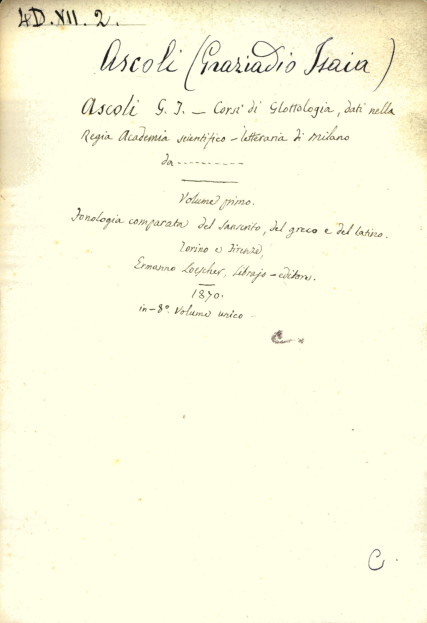 4D.XII.2.
Ascoli (Graziadio Isaia)
Ascoli G. I. — Corsi di Glottologia, dati nella
Regia Academia scientifico-letteraria di Milano
da ----------
Volume primo.
Fonologia comparata del sanscrito, del greco e del latino.
Torino e Firenze,
Ermanno Loescher, librajo-editore.
1870.
in-8°. Volume unico
C.